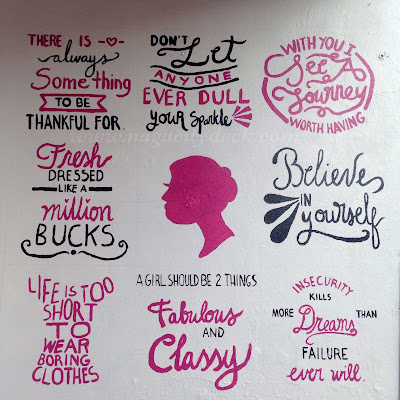 THERE IS
always
Something
TO BE
THANKFUL FOR.
DON'T Let
ANYONE
EVER DULL
YOUR Sparkle
WITH YOU I
See A
Journey
WORTH HAVING
Fresh
DRESSED
LIKE A
million
BUCKS
Believe
IN
yourself
LIFE IS TOO
SHORT
TO
WEAR
BORING
CLOTHES
A GIRL SHOULD BE 2 THINGS
Fabulous
AND
Classy
INSECURITY
KILLS
MORE Dreams THAN
FAILURE
ever will.